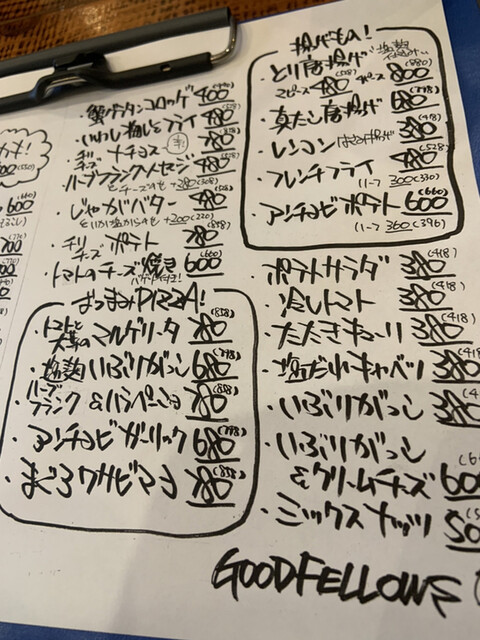 蟹グラタンコロッケ 400(440)
いわし梅しそフライ 480(528)
チリチーズ ナチョス 780(858)
ハーブフランクソーセージ 480(528)
+280(308)
じゃがバター 480(528)
+いか塩辛のせ +200(220)
チリチーズ ポテト 780(858)
トマトのチーズ焼き 600(660)
バゲット付き!
おつまみPIZZA!
・トマトと大葉のマルゲリータ 780(858)
・塩麹いぶりがっこ 680(748)
・ハーブフランク&ハラペーニョ 780(858)
・アンチョビガーリック 680(748)
・まぐろワサビマヨ 780(858)
揚げもの!
・とり唐揚げ 5ピース 800(880)
3ピース 480(528)
・真だこ唐揚げ 680(748)
・レンコンはさみ揚げ 380(418)
・フレンチフライ 480(528)
ハーフ 300(330)
・アンチョビポテト 600(660)
ハーフ 360(396)
ポテトサラダ 380(418)
・冷しトマト 380(418)
・たたきキューリ 380(418)
・塩だれキャベツ 380(418)
・いぶりがっこ 380
・いぶりがっこ
&クリームチーズ 600
・ミックスナッツ 50
GOODFELLOWS